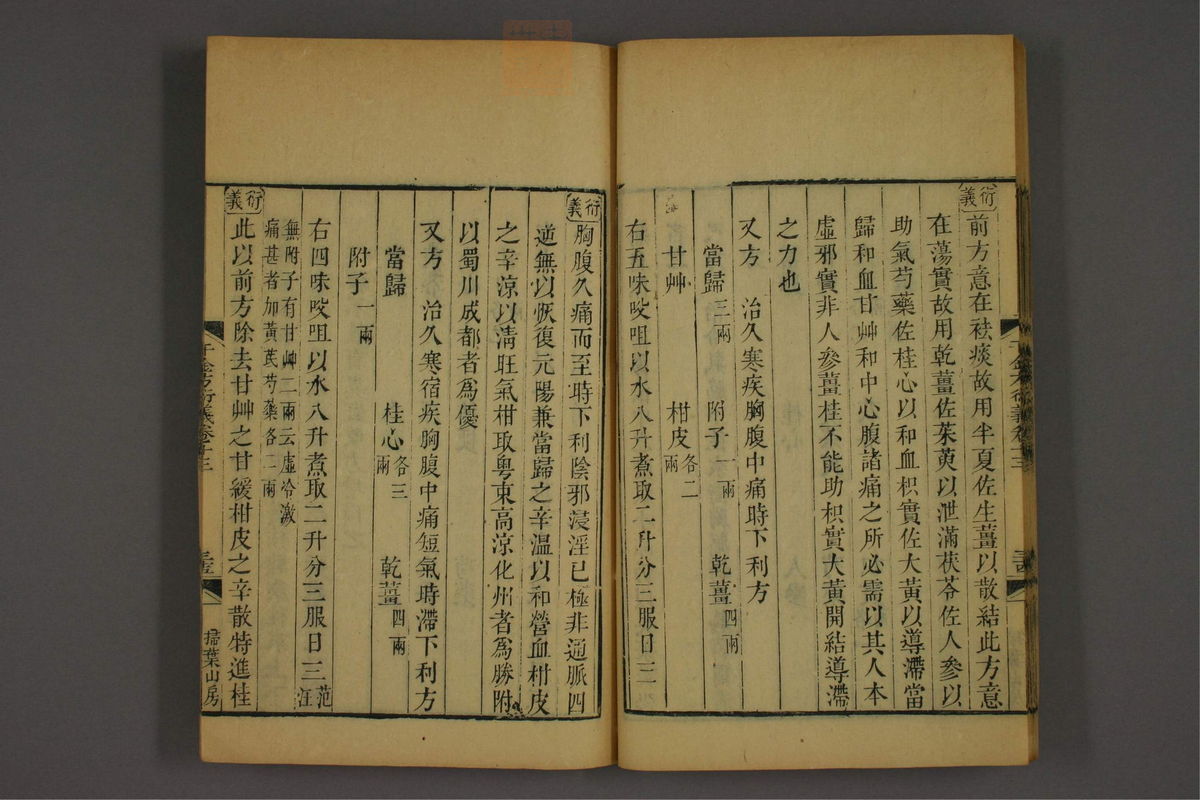 衍義
前方意在祛痰故用半夏佐生薑以散結此方意
在蕩實故用乾薑佐茱萸以泄滿茯苓佐人參以
助氣芍藥佐桂心以和血枳實佐大黃以導滯當
歸和血甘艸和中心腹諸痛之所必需以其人本
虛邪實非人參薑桂不能助枳實大黃開結導滯
之力也
又方 治久寒疾胸腹中痛時下利方
當歸三兩 附子一兩 乾薑四兩
甘艸 柑皮各二兩
右五味㕮咀以水八升煮取二升分三服日三
衍義
胸腹久痛而至時下利陰邪浸淫已極非通脈四
逆無以恢復元陽兼當歸之辛溫以和營血柑皮
之辛涼以清旺氣柑取粵東高涼化州者為勝附
以蜀川成都者為優
又方 治久寒宿疾胸腹中痛短氣時滯下利方
當歸 桂心各三兩 乾薑四兩
附子一兩
右四味㕮咀以水八升煮取二升分三服日三范汪
無附子有甘艸二兩云虛冷激
痛甚者加黃芪芍藥各二兩
衍義
此以前方除去甘艸之甘緩柑皮之辛散特進桂
千金方衍義卷十三
掃葉山房